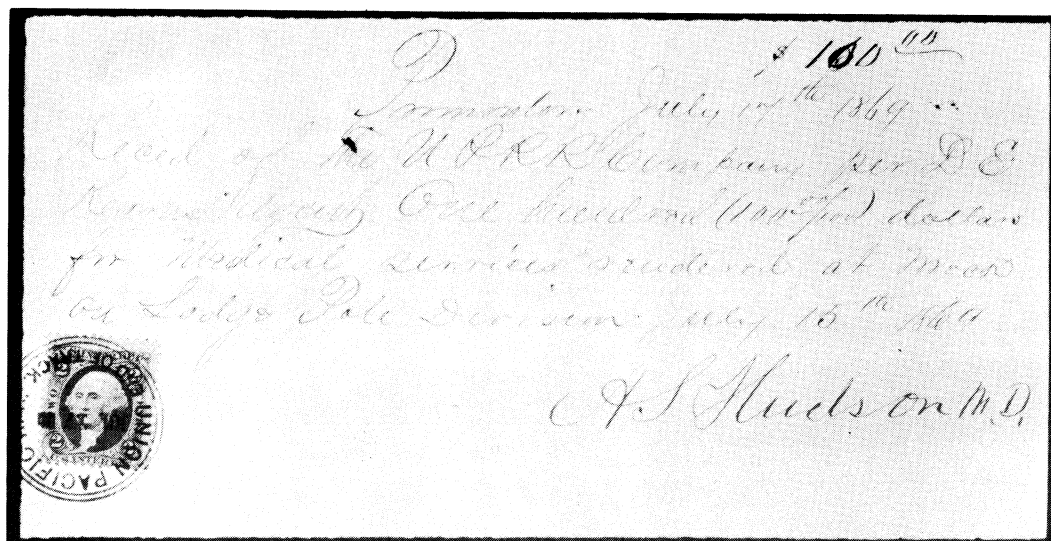 $ 100 00
July 17th 1869
Recd of the U P R R Company per D E
One hundred (100 00/100) dollars
for Medical services rendered at
on Lodge Pole Division July 15th 1869
A S Hudson M.D.
UNION PACIFIC
END OF TRACK